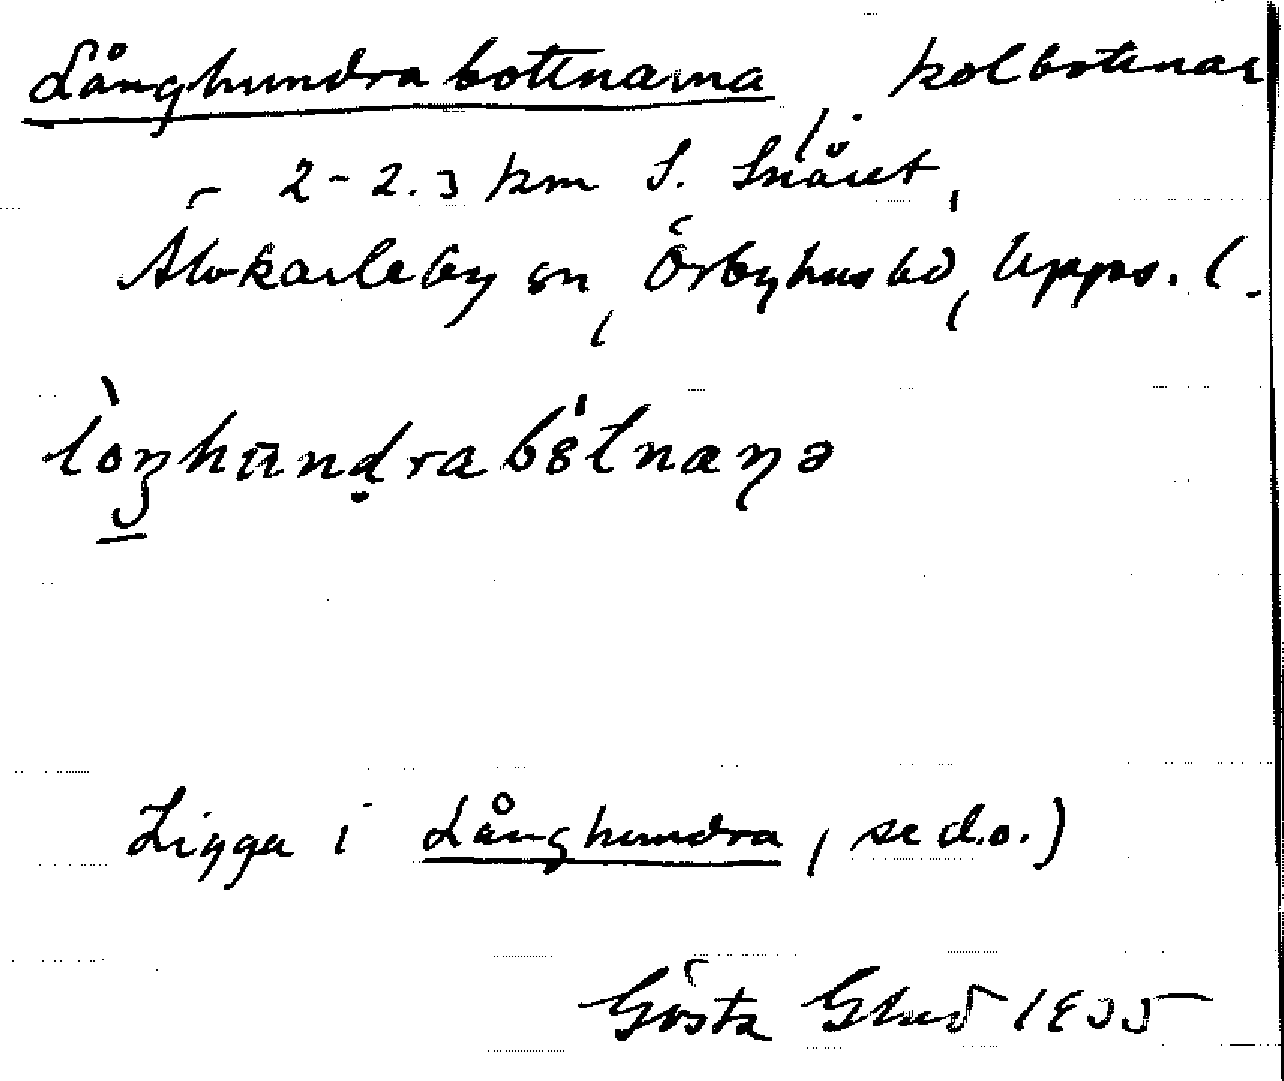 Långhundrabottnarna, kolbottnar
2-2.3 km S. Snåret,
Älvkarleby sn, Örbyhus hd, Upps. l.
lòŋhūnḍrabòtnaŋə
Ligga i Långhundra, se d.o.)
Gösta